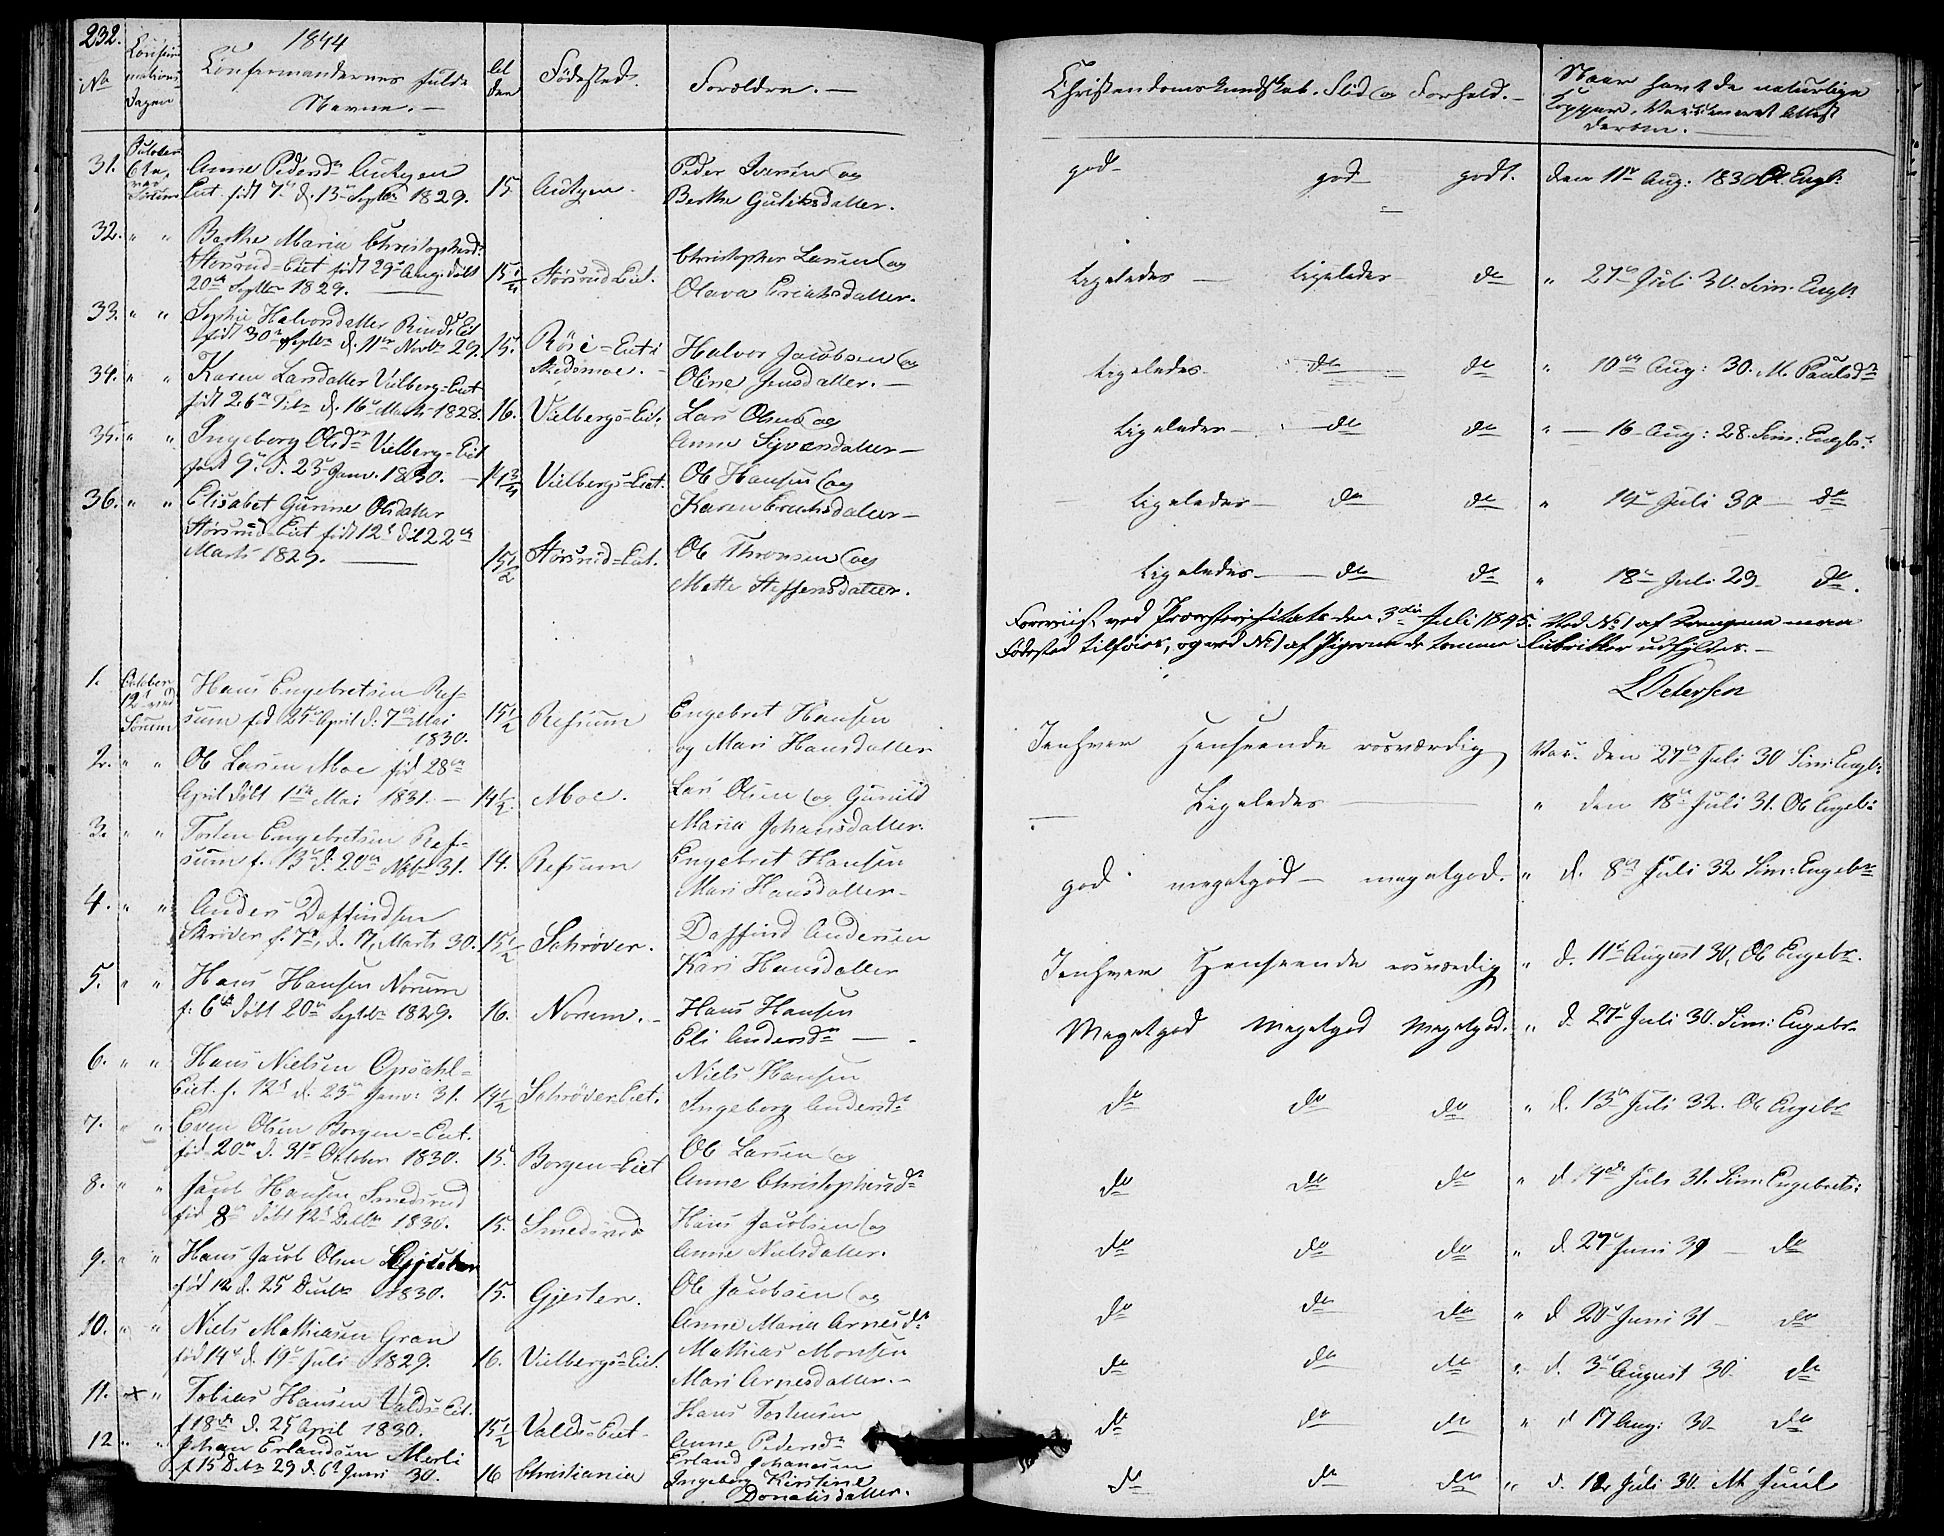 232.
1844
No
Confir-
mations
Dagen
Confirmandernes fulde
Navne. —
Al
der
Fødested.
Forældre. —
Christendomskundskab. Flid og Forhold. —
Naar havt de naturlige
Kopper. Vaccineret Attest
derom. —
31. October
6te
Anne Pedersdr Autgen
Eiet født 7de d. 13de Septbr 1829. 15 Autgen.
Peder Iversen og
Berthe Guliksdatter.
god god godt. den 11te Aug: 1830
32. " " Berthe Maria Christophersdr
Størsrud-Eiet født 29de Aug: døbt
20de Septbr 1829. 15 1/4 Størsrud-Eiet.
Christopher Larsen og
Olava Erichsdatter.
Ligeledes — Ligeledes do " 27de Juli 30. Sim: Engb:
33. " " Sophie Halvorsdatter Eiet
født 30te Septbr d. 11te Novbr 29. 15. Eiet i
Skedsmoe.
Halvor Jacobsen og
Oline Jensdatter. —
Ligeledes do do " 10de Aug: 30. M. Paulsdr
34. " " Karen Larsdatter Vielberg-Eiet
født 26de d. 16de Marts 1828. 16. Vielbergs-Eiet.
Lars Olsen og
Anne Syversdatter —
Ligeledes — do do " — 16 Aug: 28. Sim: Engb:
35. " " Ingeborg Olsdr Vielberg-Eiet
født 9de d. 23de Janv. 1830. — 14 3/4 Vielbergs-Eiet.
Ole Hansen og
Karen Erichsdatter —
Ligeledes — do do " 19de Juli 30 — do
36. " " Elisabet Gurine Olsdatter
Størsrud-Eiet født 12te d. 22de
Marts 1829. — 15 1/2 Størsrud-Eiet.
Ole Thronsen og
Mette Steffensdatter.
Ligeledes — do do " 18de Juli 29 do.
Foreviist ved Provstevisitats den 3die Juli 1845. Ved No 1 af Drengene maa
Fødested tilføies, og ved No 1 af Pigerne de tomme Rubrikker udfyldes. —
L Petersen
1. October
12te ved
Sørum
Hans Engebretsen Ref-
sum fød 25de April d: 7de Mai
1830. 15 1/2 Refsum
Engebret Hansen
og Mari Hansdatter
I enhver Henseende roesværdig Vac. den 27de Juli 30 Sim: Engb:
2. " " Ole Larsen Moe fød 28de
April døbt 1ste Mai 1831. — 14 1/2. Moe.
Lars Olsen og Gunild
Maria Johansdatter.
Ligeledes — " den 18de Juli 31. Ole Engeb:
3. " " Torsten Engebretsen Ref-
sum f. 13de d. 20de Nvbr 31. 14. Refsum
Engebret Hansen
Mari Hansdatter —
god megetgod — megetgod. " d. 8de Juli 32 Sim: Engebr
4. " " Anders Daffindsen
Skriver f. 7de d. 17 Marts 30. 15 1/2 Schrøver.
Daffind Andersen
Kari Hansdatter
I enhver Henseende roesværdig " d. 11te August 30, Ole Engebr.
5. " " Hans Hansen Norum
f: 6te døbt 20de Septbr 1829. 16. Norum. —
Hans Hansen
Eli Andersdr —
Megetgod Megetgod Megetgod. " d. 27de Juli 30. Sim: Engebr
6. " " Hans Nielsen Opsahl-
Eiet. f. 12te d. 23de Janv: 31. 14 1/2 Schrøver-Eiet.
Niels Hansen
Ingeborg Andersdr
do do do " d. 13de Juli 32. Ole Engebr
7. " " Even Olsen Borgen-Eiet.
fød 20de d. 31te October 1830. 15. Borgen-Eiet
Ole Larsen og
Anne Christophersdr
do do do " d. 9de Juli 31. Sim: Engebrets:
8. " " Jacob Hansen Smedsrud
fød 8de døbt 12te Decbr 1830. 15. Smedsrud
Hans Jacobsen og
Anne Nielsdatter.
do do do " d. 27de Juni 39 — do
9. " " Hans Jacob Olsen Gjester
fød 12 d. 25 Decbr 1830. 15. Gjester.
Ole Jacobsen og
Anne Maria Arnesdr
do do do " d. 20de Juni 31 — do
10. " " Niels Mathiasen Gran
fød 14de d. 19de Juli 1829. 16. Vielbergs-Eiet.
Mathias Monsen
Mari Arnesdatter. —
do do do " d. 3de August 30 do
11. x " Tobias Hansen Valds-Eiet.
f 18de d. 25 April 1830. 15 1/2 Valds-Eiet —
Hans Torstensen
Anne Pedersdr
do do do " d 17 Aug: 30 — do
12. " " Johan Erlandsen Merli
f 15 Debr 29 d. 6te Juni 30. 16 Christiania
Erland Johansen
Ingeborg Kirstine
Donatisdatter.
do do do " d. 12 Juli 30. M Juul